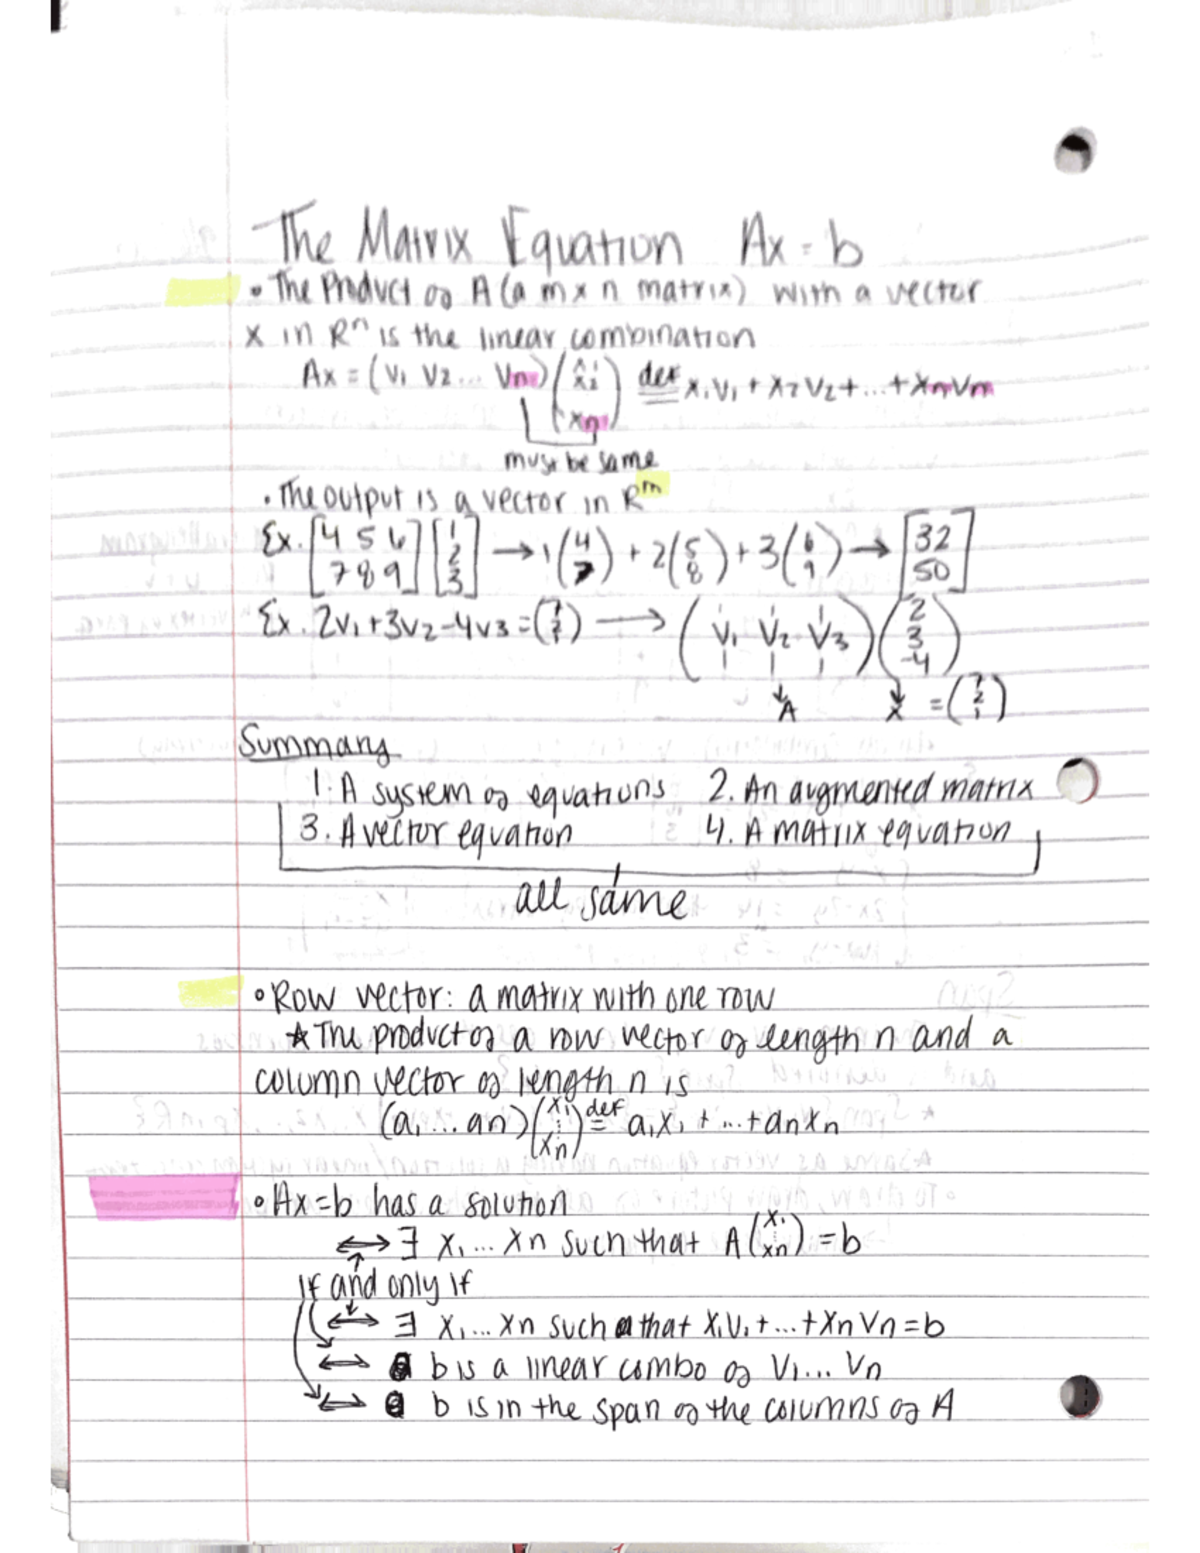 The Matrix Equation Ax = b
• The Product of A (a m x n matrix) with a vector
x in Rⁿ is the linear combination
Ax = (v₁ v₂ ... vₙ) (x₁ x₂ ⋮ xₙ) def= x₁v₁ + x₂v₂ + ... + xₙvₘ
must be same
• The output is a vector in Rᵐ
Ex. [4 5 6 7 8 9] [1 2 3] → 1(4 7) + 2(5 8) + 3(6 9) → [32 50]
Ex. 2v₁ + 3v₂ - 4v₃ = → (v₁ v₂ v₃) (2 3 -4)
A x = (7 2 1)
Summary
1. A system of equations 2. An augmented matrix
3. A vector equation 4. A matrix equation
all same
• Row vector: a matrix with one row
★ The product of a row vector of length n and a
column vector of length n is
(a₁ ... an) (x₁ ⋮ xn) def= a₁x₁ + ... + anxn
• Ax=b has a solution
⟺ ∃ x₁ ... xn such that A (x₁ ⋮ xn) = b
if and only if
⟺ ∃ x₁ ... xn such that x₁v₁ + ... + xnvn = b
⟺ b is a linear combo of v₁ ... vn
⟺ b is in the span of the columns of A